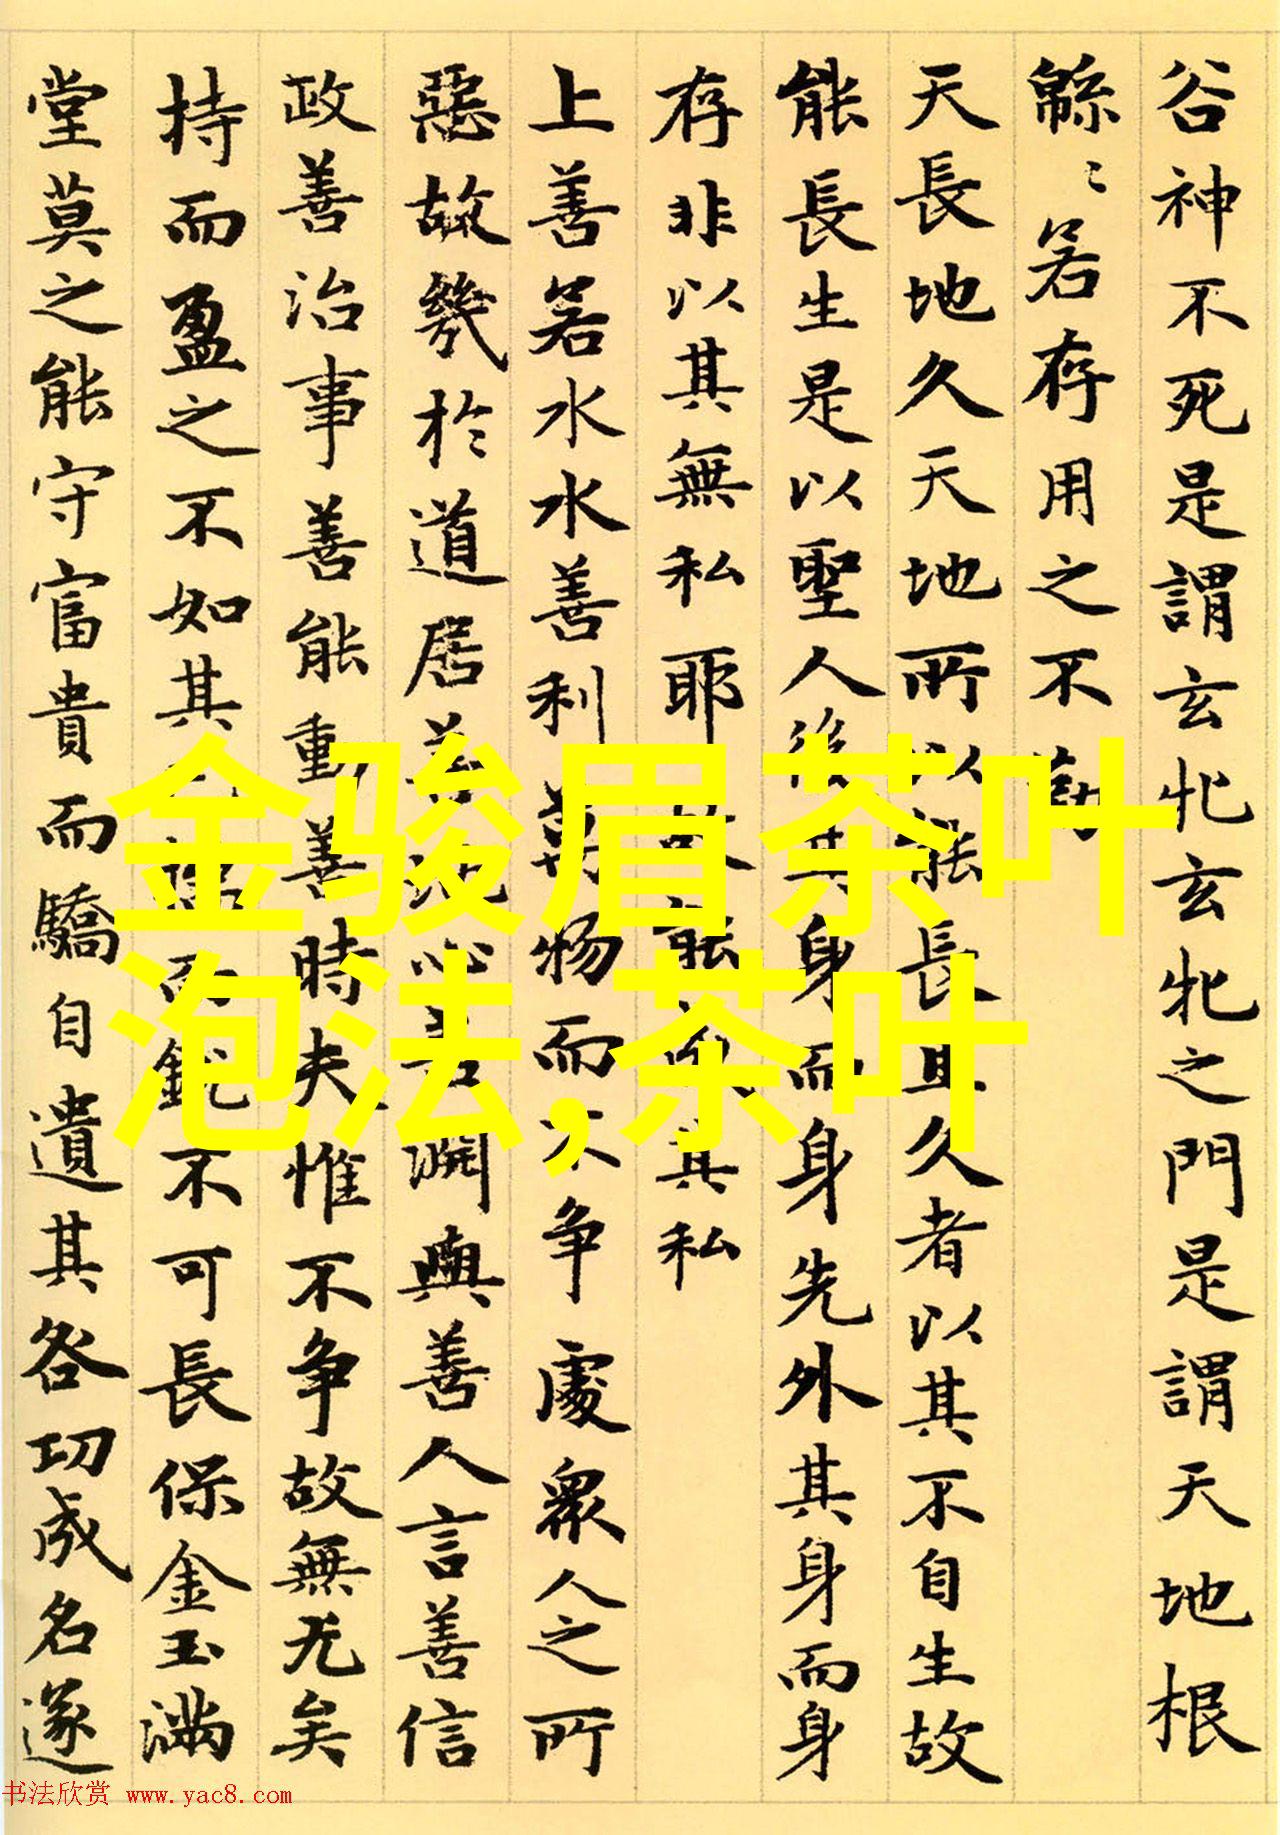 谷神不死是謂玄牝玄牝之門是謂天地根
緜〻若存用之不勤
天長地久天地所以能長且久者以其不自生故
能長生是以聖人後其身而身先外其身而身
存非以其無私耶故能成其私
上善若水水善利萬物而不争處衆人之所
惡故幾於道居善地心善渊與善人言善信
政善治事善能動善時夫惟不争故無尤矣
持而盈之不如其已揣而銳不可長保金玉滿
堂莫之能守富貴而驕自遺其咎功成名遂
金骏眉茶叶
泡法,茶叶
书法欣赏 www.yac8.com